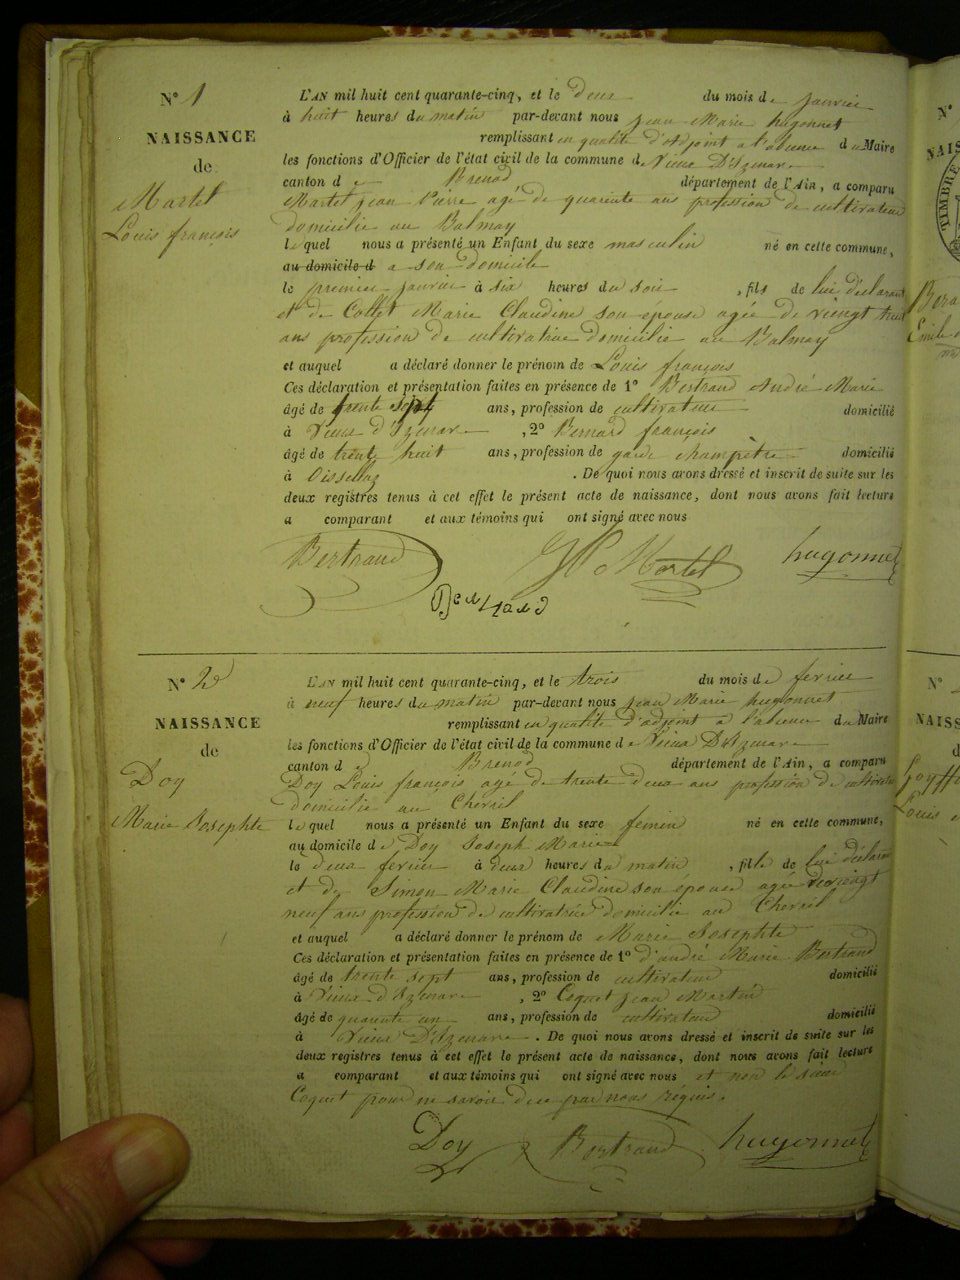 N° 1
NAISSANCE
de
Martel
Louis françois
L'AN mil huit cent quarante-cinq, et le deux du mois de janvier
à huit heures du matin par-devant nous jean Marie hugonnet
remplissant en qualité d'adjoint a l'absence du Maire
les fonctions d'Officier de l'état civil de la commune de Vieux D'Izenave
canton de Brenod département de l'Ain, a comparu
Martel jean Pierre agé de quarante ans profession de cultivateur
domicilié au Balmay
lequel nous a présenté un Enfant du sexe masculin né en cette commune,
au domicile d a son domicile
le premier janvier à six heures du soir, fils de lui déclarant
et de Collet Marie Claudine son épouse agée de vieingt huit
ans profession de cultivatrice domicilié au Balmay
et auquel a déclaré donner le prénom de Louis françois
Ces déclaration et présentation faites en présence de 1° Bertrand André Marie
âgé de trente sept ans, profession de cultivateur domicilié
à Vieux d'Izenave, 2° Bernard françois
âgé de trente huit ans, profession de garde champètre domicilié
à Oissellaz. De quoi nous avons dressé et inscrit de suite sur les
deux registres tenus à cet effet le présent acte de naissance, dont nous avons fait lecture
a comparant et aux témoins qui ont signé avec nous
Bertrand Martel hugonnet
Bernard
N° 2
NAISSANCE
de
Doy
Marie Josephte
L'AN mil huit cent quarante-cinq, et le trois du mois de fevrier
à neuf heures du matin par-devant nous jean Marie hugonnet
remplissant en qualité d'adjoint a l'absence du Maire
les fonctions d'Officier de l'état civil de la commune de Vieux D'Izenave
canton de Brenod département de l'Ain, a comparu
Doy Louis françois agé de trente deux ans profession de cultivateur
domicilié au Chevril
lequel nous a présenté un Enfant du sexe feminin né en cette commune,
au domicile de Doy Joseph Marie
le deux fevrier à deux heures du matin, fille de lui déclarant
et de Simon Marie Claudine son épouse agée de vieingt
neuf ans profession de cultivatrice domicilié au Chevril
et auquel a déclaré donner le prénom de Marie Josephte
Ces déclaration et présentation faites en présence de 1° d'andré Marie Bertrand
âgé de trente sept ans, profession de cultivateur domicilié
à Vieux d'Izenave, 2° Coquet jean Martin
âgé de quarente un ans, profession de cultivateur domicilié
à Vieux D'Izenave. De quoi nous avons dressé et inscrit de suite sur les
deux registres tenus à cet effet le présent acte de naissance, dont nous avons fait lecture
a comparant et aux témoins qui ont signé avec nous et non le sieur
Coquet pour ne savoir de ce par nous réquis.
Doy Bertrand hugonnet
N°
NAIS
TIMBRE
N°
NAISS
d
Louis